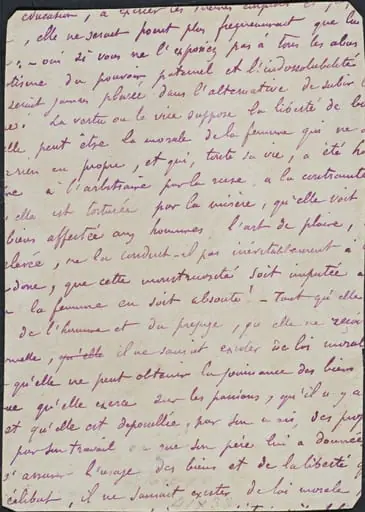 éducation, a exercer les mêmes emplois et
, elle ne serait point plus fréquemment que lui
. - oui si vous ne l'exposiez pas à tous les abus
-otisme du pouvoir paternel et l'indissolubilité
serait jamais placée dans l'alternative de subir l
La vertu ou le vice suppose la liberté de
elle peut être la morale de la femme qui ne
rien en propre, et qui, toute sa vie, a été
à l'arbitraire par la ruse, a la contrainte
elle est torturée par la misère, qu'elle voit
biens affectée aux hommes l'art de plaire,
élevée, ne la conduit-il pas inévitablement à
-donc, que cette monstruosité soit imputée a
la femme en soit absoute! - Tant qu'elle
de l'homme et du préjugé, qu'elle ne reçoi
-onnelle, qu'elle il ne saurait exister de loi moral
- qu'elle ne peut obtenir la jouissance des biens
-ue qu'elle exerce sur les passions, qu'il n'y a
et qu'elle est dépouillée, par son des
par son travail ou que son père lui a données
s'assurer l'usage des biens et de la liberté
célibat, il ne saurait exister de loi morale